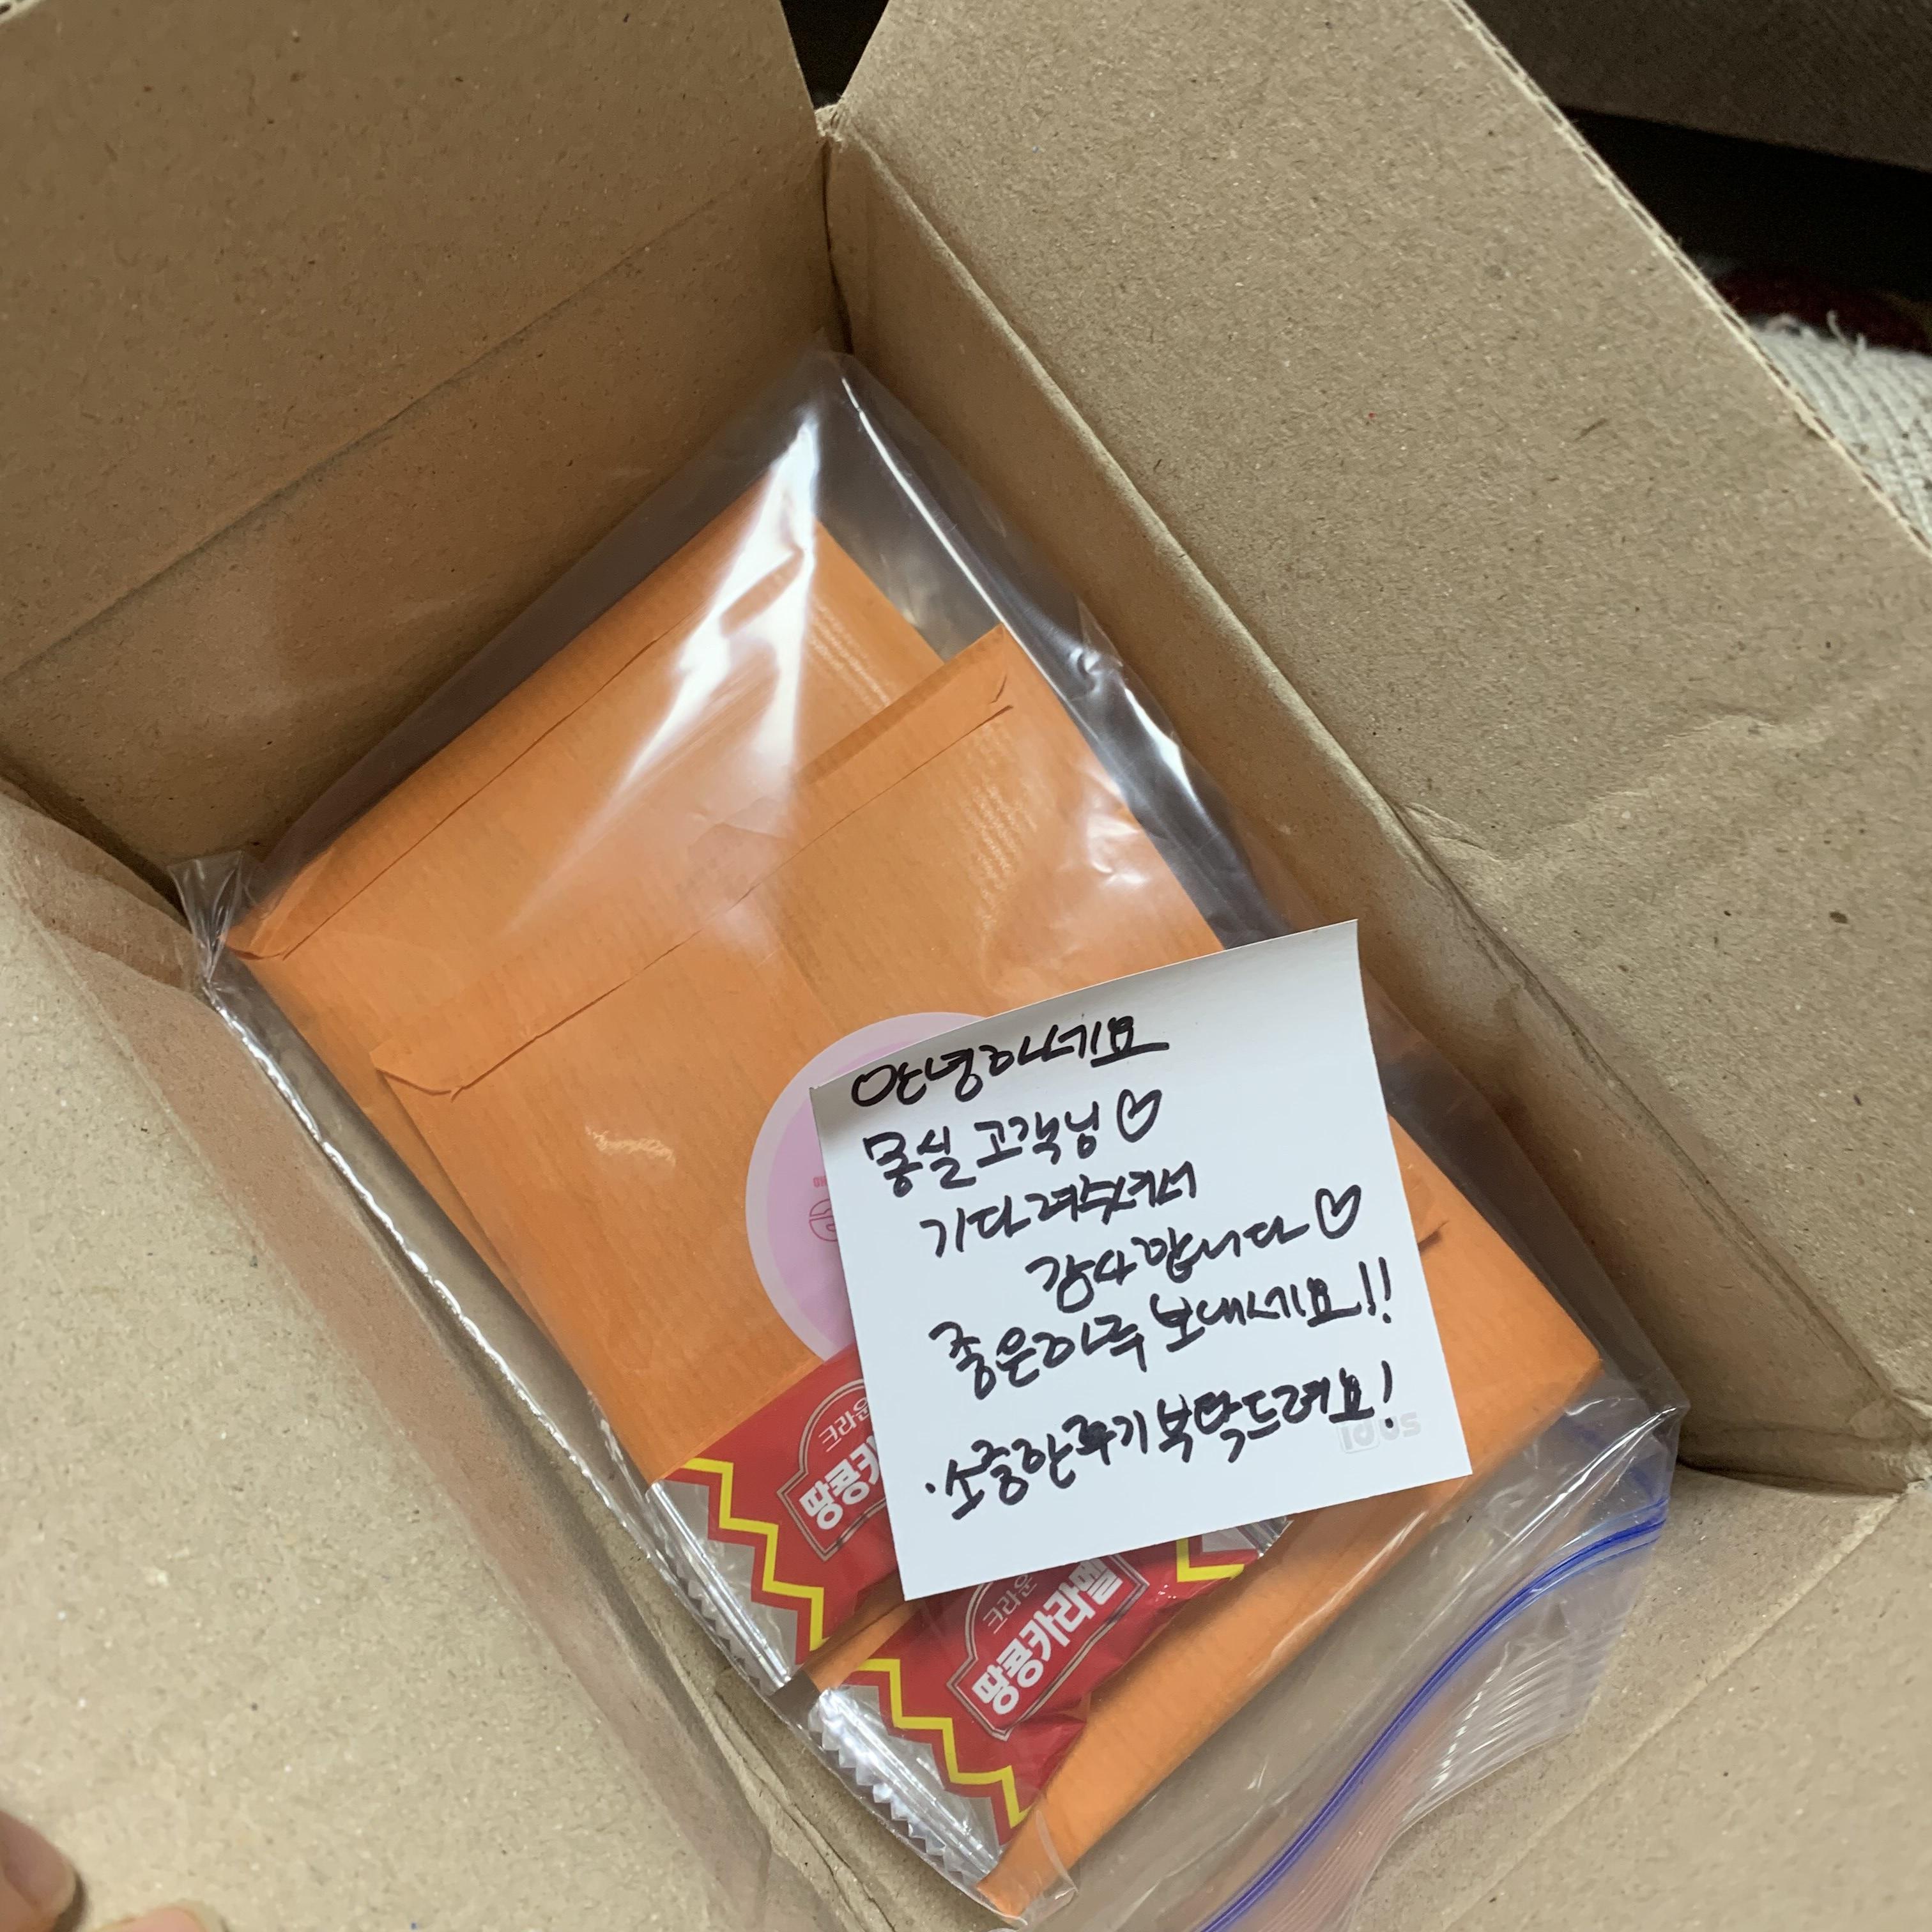 안녕하세요
몽실 고객님♡
기다려주셔서
감사합니다♡
좋은하루 보내세요!!
·소중한후기 부탁드려요!
idus
크라운
땅콩카
크라운
땅콩카라멜